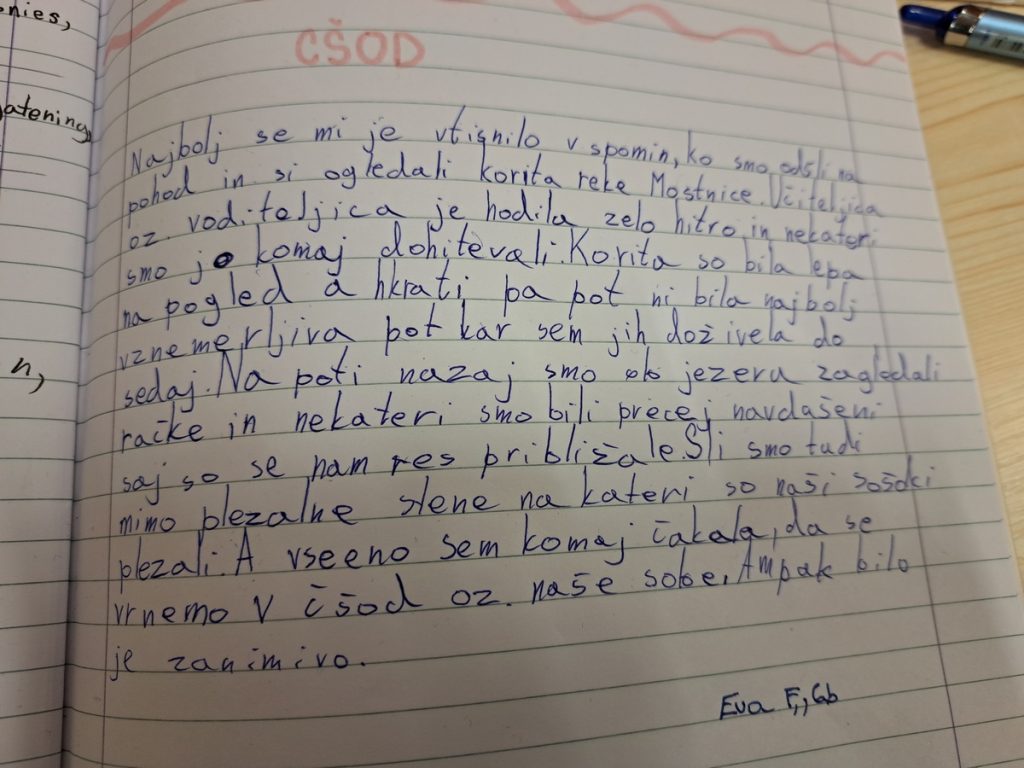 nies,
atening,
n,
CŠOD
Najbolj se mi je vtisnilo v spomin, ko smo odšli na
pohod in si ogledali korita reke Mostnice. Učiteljica
oz. voditeljica je hodila zelo hitro in nekateri
smo jo komaj dohitevali. Korita so bila lepa
na pogled a hkrati pa pot ni bila najbolj
vznemerljiva pot kar sem jih doživela do
sedaj. Na poti nazaj smo ob jezeru zagledali
račke in nekateri smo bili precej navdašeni
saj so se nam res približale. Šli smo tudi
mimo plezalne stene na kateri so naši sošolci
plezali. A vseeno sem komaj čakala, da se
vrnemo v čšod oz. naše sobe. Ampak bilo
je zanimivo.
Eva F., 6b